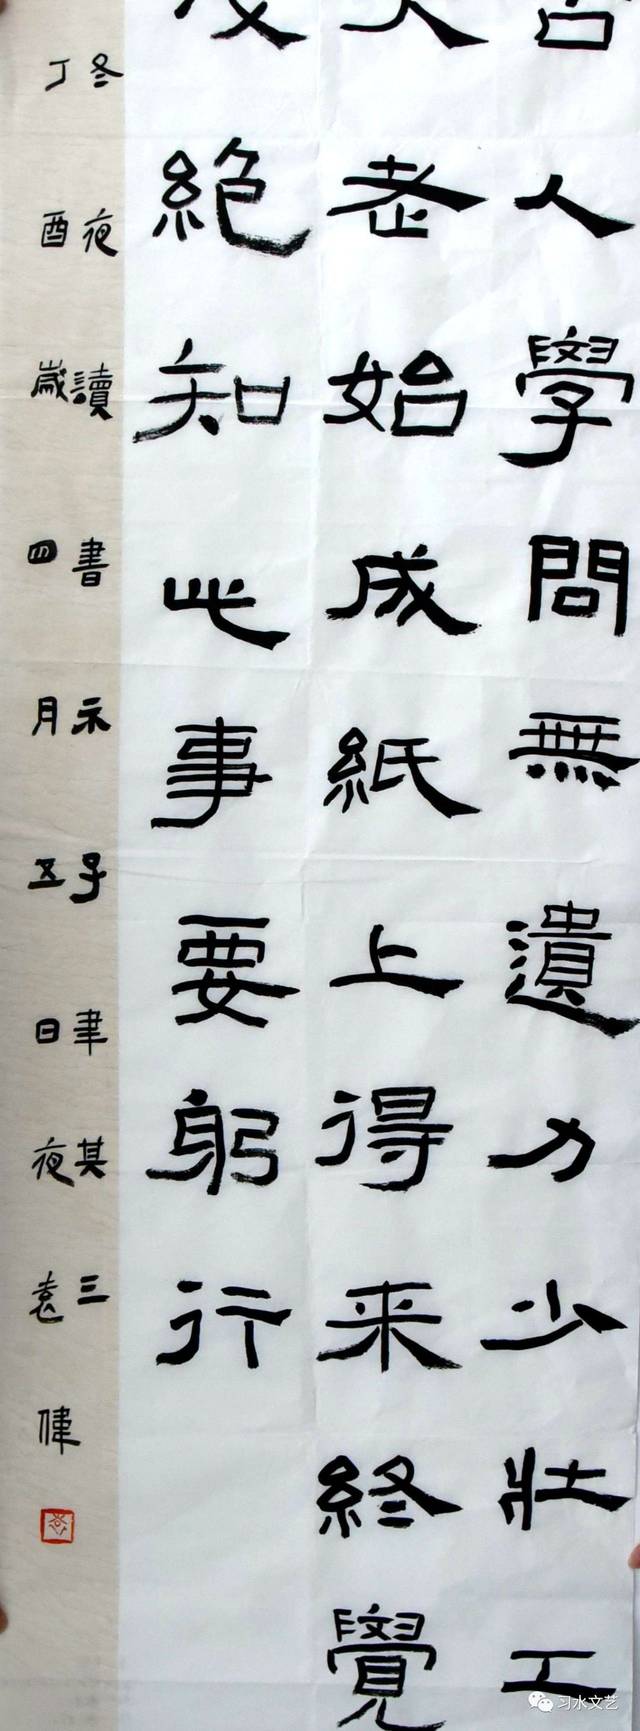 人學問無遺力少壯工
老始成紙上得来終覺
絕知此事要躬行
冬夜讀書示子聿其三
丁酉歲四月五日夜袁
习水文艺